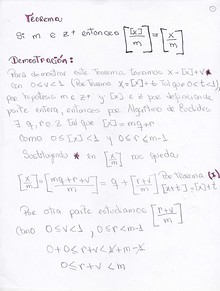 ①
Teorema
Si m ∈ Z+ entonces [[x]/m] = [x/m]
Demostración:
Para demostrar este Teorema tomamos x = [x]+v *
con 0≤v<1 (Por Teorema x=[x]+t Tal que 0≤t<1), y
por hipótesis m ∈ Z+ y [x] ∈ Z por definición de
parte entera, entonces por Algoritmo de Euclides
∃ q, r ∈ Z Tal que [x] = mq+r
Como 0≤[x]<1 y 0≤r≤m-1
Sustituyendo * en [x/m] nos queda
[x/m] = [mq+r+v/m] = q + [r+v/m] Por Teorema (I) [x+t]=[x]+t
Por otra parte estudiamos [r+v/m]
Como 0≤v<1, 0≤r≤m-1
0+0≤r+v<1+m-1
0≤r+v<m